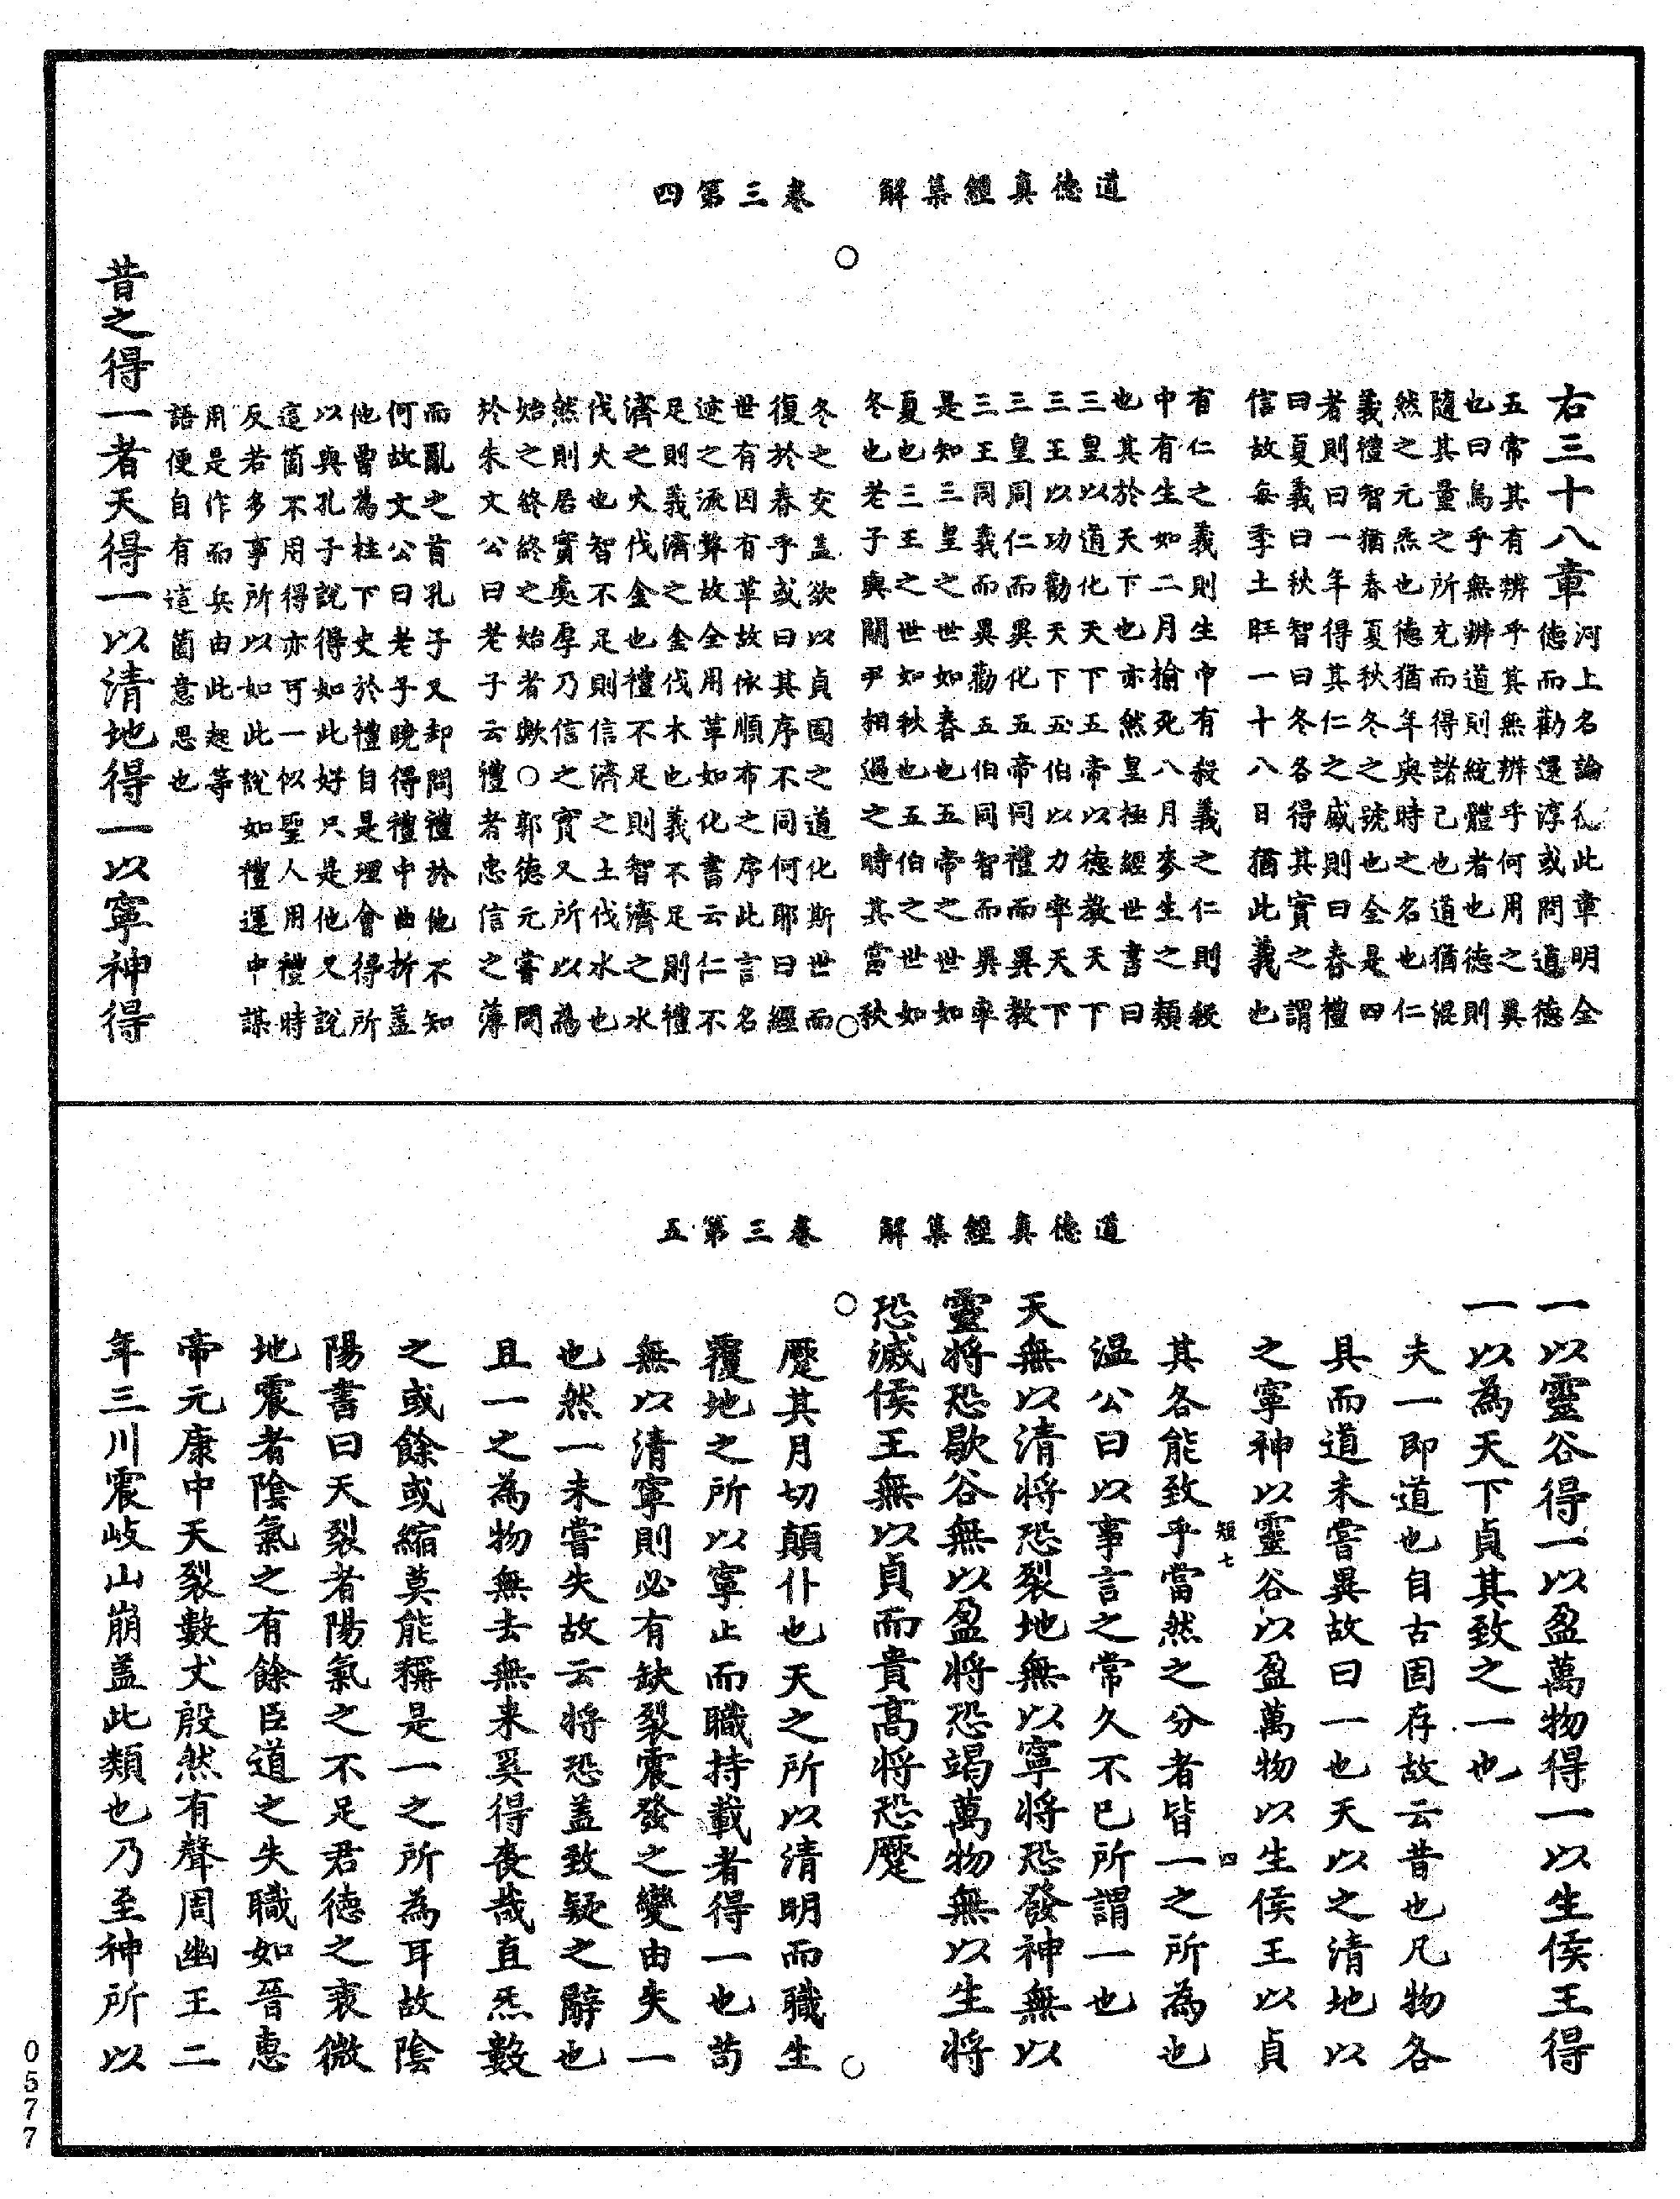 道德真經集解　卷三第四
右三十八章河上名論德此章明全
德而勸還淳或問道德
五常其有辨乎其無辨乎何用之異
也曰烏乎無辨道則統體者也德則
隨其量之所充而得諸己也道猶混
然之元炁也德猶年與時之名也仁
義禮智猶春夏秋冬之號也全是四
者則曰一年得其仁之盛則曰春禮
曰夏義曰秋智曰冬各得其實之謂
信故每季土旺一十八日猶此義也
有仁之義則生中有殺義之仁則殺
中有生如二月榆死八月麥生之類
也其於天下也亦然皇極經世書曰
三皇以道化天下五帝以德教天下
三王以功勸天下五伯以力率天下
三皇同仁而異化五帝同禮而異教
三王同義而異勸五伯同智而異率
是知三皇之世如春也五帝之世如
夏也三王之世如秋也五伯之世如
冬也老子與關尹相遇之時其當秋
冬之交蓋欲以貞固之道化斯世而
復於春乎或曰其序不同何耶曰經
世有因有革故依順布之序此言名
迹之派弊故全用革如化書云仁不
足則義濟之金伐木也義不足則禮
濟之火伐金也禮不足則智濟之水
伐火也智不足則信濟之土伐水也
然則居實處厚乃信之實又所以為
始之終終之始者歟○郭德元嘗問
於朱文公曰老子云禮者忠信之薄
而亂之首孔子又却問禮於他不知
何故文公曰老子曉得禮中曲折蓋
他曾為柱下史於禮自是理會得所
以與孔子說得如此好只是他又說
這箇不用得亦可一似聖人用禮時
反若多事所以如此說如禮運中謀
用是作而兵由此起等
語便自有這箇意思也
昔之得一者天得一以清地得一以寧神得
道德真經集解　卷三第五
一以靈谷得一以盈萬物得一以生侯王得
一以為天下貞其致之一也
夫一即道也自古固存故云昔也凡物各
具而道未嘗異故曰一也天以之清地以
之寧神以靈谷以盈萬物以生侯王以貞
其各能致乎當然之分者皆一之所為也
短七　四
溫公曰以事言之常久不已所謂一也
天無以清將恐裂地無以寧將恐發神無以
靈將恐歇谷無以盈將恐竭萬物無以生將
恐滅侯王無以貞而貴高將恐蹷
蹷其月切顛仆也天之所以清明而職生
覆地之所以寧止而職持載者得一也苟
無以清寧則必有缺裂震發之變由失一
也然一未嘗失故云將恐蓋致疑之辭也
且一之為物無去無來奚得喪哉直炁數
之或餘或縮莫能稱是一之所為耳故陰
陽書曰天裂者陽氣之不足君德之衰微
地震者陰氣之有餘臣道之失職如晉惠
帝元康中天裂數丈殷然有聲周幽王二
年三川震岐山崩蓋此類也乃至神所以
0577